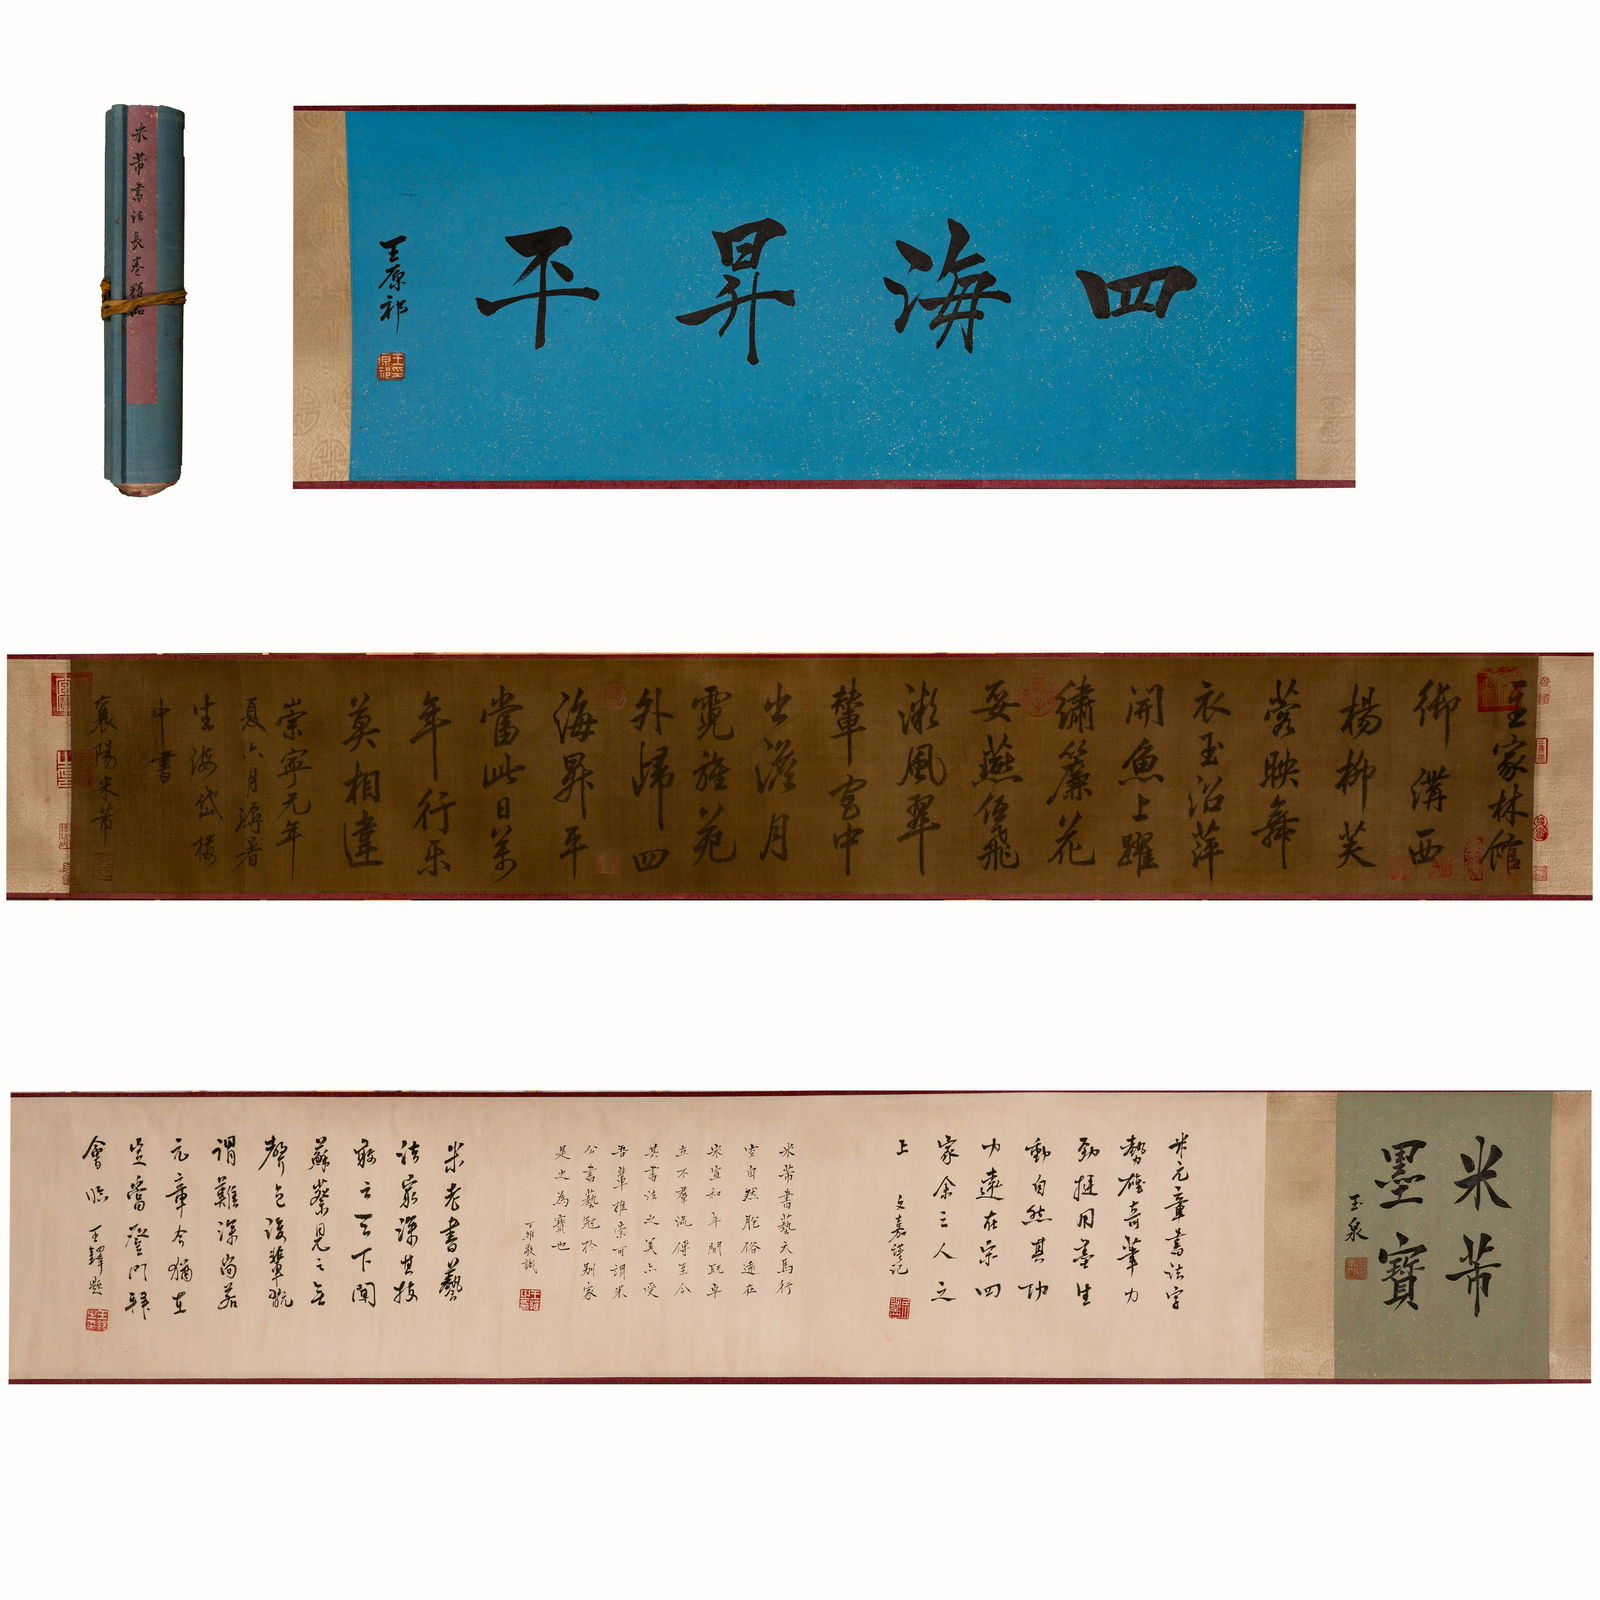 米芾書法長卷精品
四海昇平
王原祁
主家林館
御溝西
楊柳芙
蓉映舞
衣玉沼萍
開魚上躍
繡簾花
妥燕傍飛
漱風翠
輦宮中
出澹月
霓旌苑
外歸四
海昇平
當此日萬
年行樂
莫相違
崇寧元年
夏六月避暑
生海岱樓
中書
襄陽米芾
米芾
墨寶
玉泉
米元章書法字
勢雄奇筆力
勁挺用墨生
動自然其功
力遠在宋四
家余三人之
上
文嘉謹記
米芾書藝天馬行
空自然脫俗遠在
宋宣和年間既卓
立不羣流傳至今
其書法之美亦受
吾輩推崇可謂米
公書藝冠於別家
是之為寶也
丁雄敬識
米老書藝
法家深其技
蘇蔡見之無
聲色後輩
謂難深尚若
元章今猶在
豈當登門拜
會臨
王鐸題